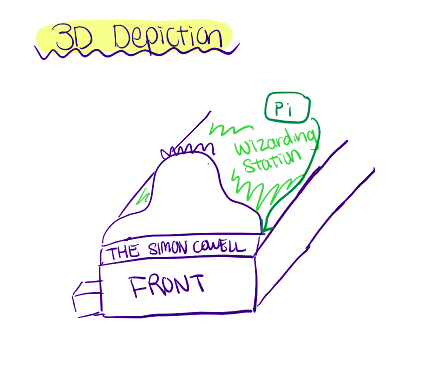 3D Depiction
Pi
Wizarding
Station
THE SIMON COWELL
FRONT